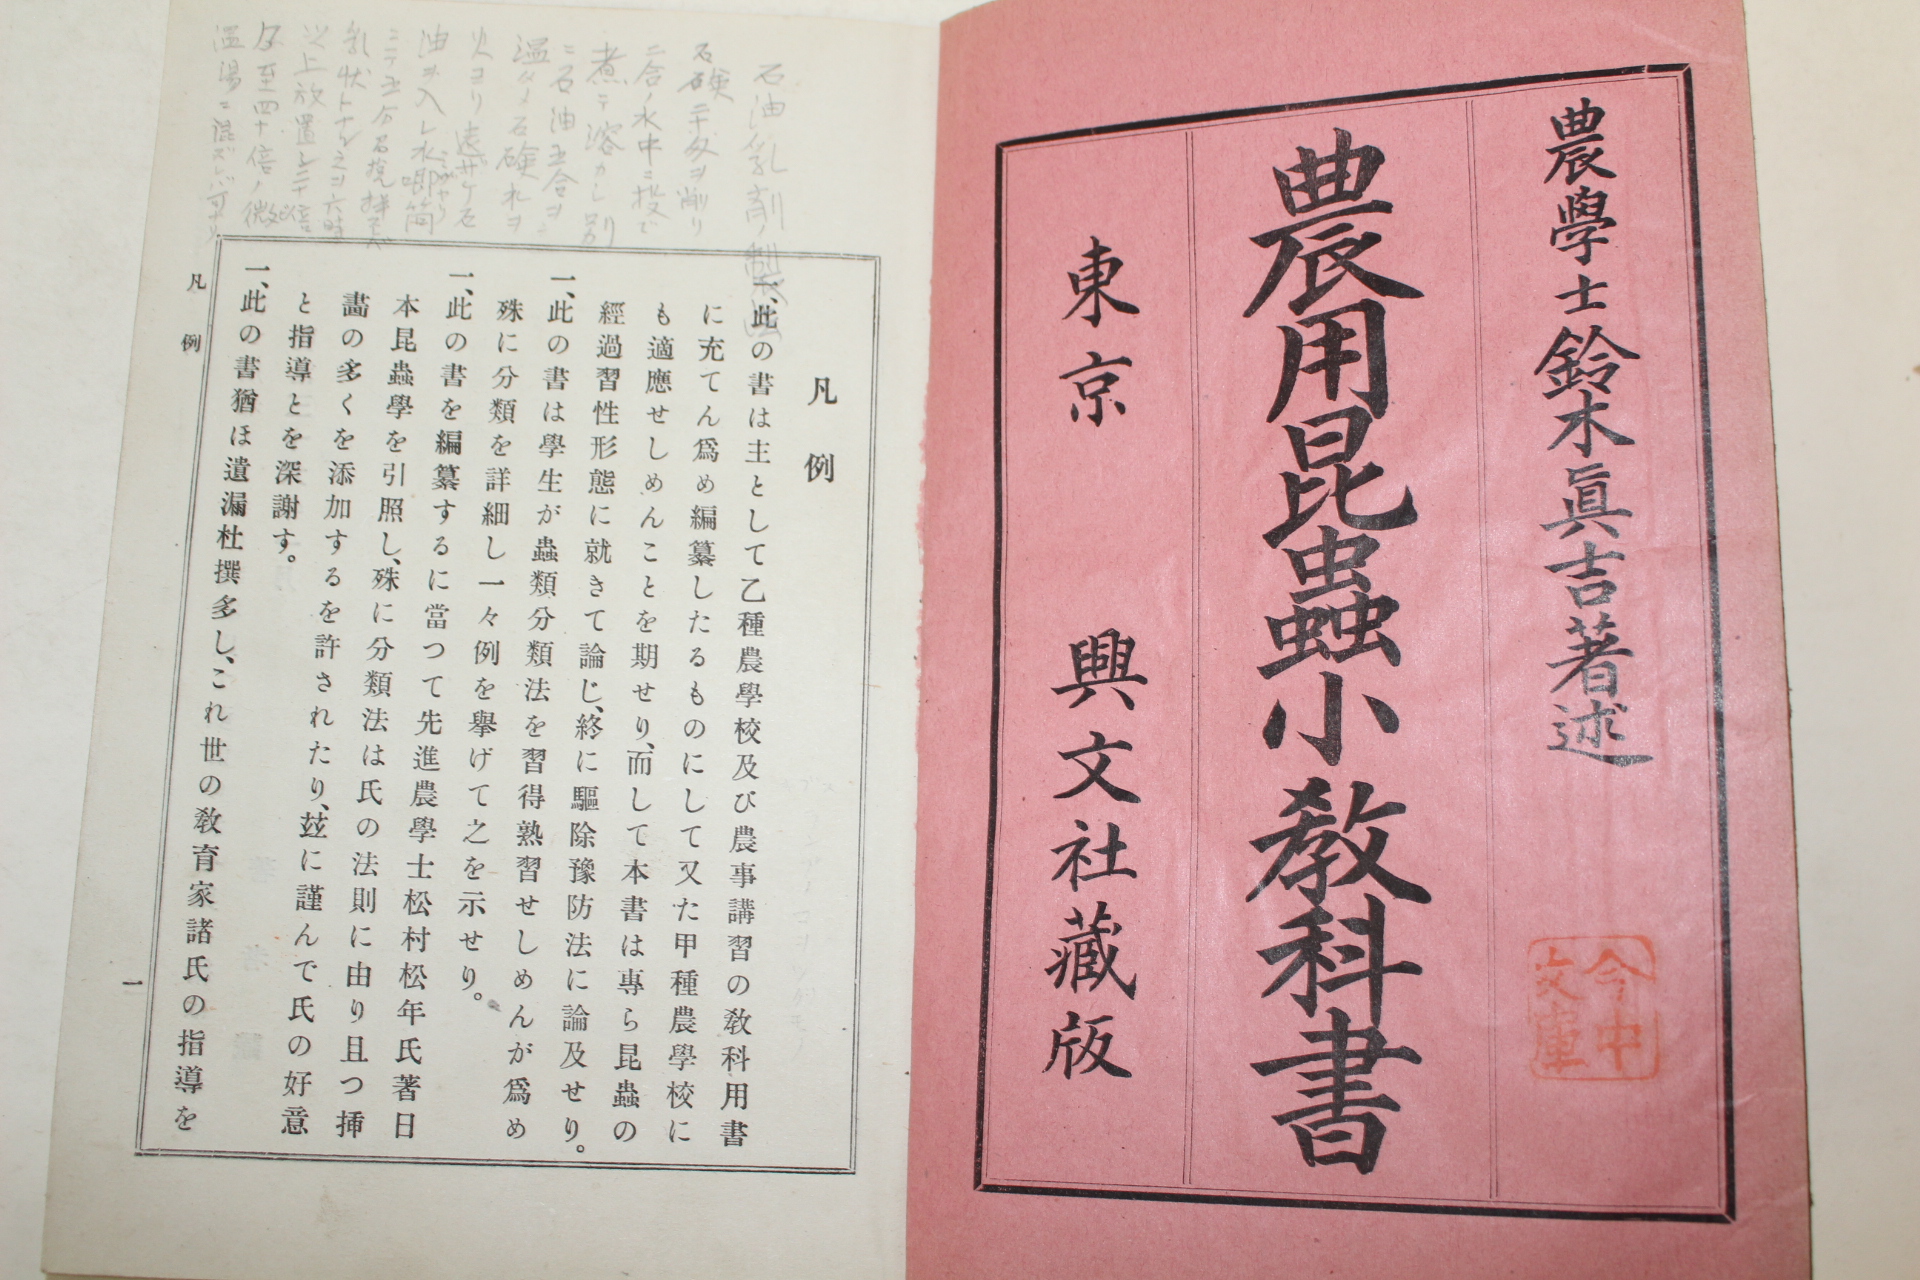 農學士鈴木眞吉著述
農用昆蟲小教科書
東京 興文社藏版
今中
文庫
凡例
一、此の書は主として乙種農學校及び農事講習の敎科用書
に充てん爲め編纂したるものにして又た甲種農學校に
も適應せしめんことを期せり、而して本書は專ら昆蟲の
經過習性形態に就きて論じ、終に驅除豫防法に論及せり。
一、此の書は學生が蟲類分類法を習得熟習せしめんが爲め
殊に分類を詳細し一々例を擧げて之を示せり。
一、此の書を編纂するに當つて先進農學士松村松年氏著日
本昆蟲學を引照し、殊に分類法は氏の法則に由り且つ挿
畵の多くを添加するを許されたり、玆に謹んで氏の好意
と指導とを深謝す。
一、此の書猶ほ遺漏杜撰多し、これ世の敎育家諸氏の指導を
凡例
一
石油乳劑ノ製法
石鹸二十匁ヲ削リ
二合ノ水中ニ投ジ
煮テ溶カシ別
ニ石油五合ヲ
温メ石鹸水ヲ
火ヨリ遠ザケ石
油ヲ入レ水喞筒
ニテ五分名攪拌
乳状トナシ之ヲ六時
以上放置シ二十倍
乃至四十倍ノ微
温湯ニ混ズレバ可ナリ